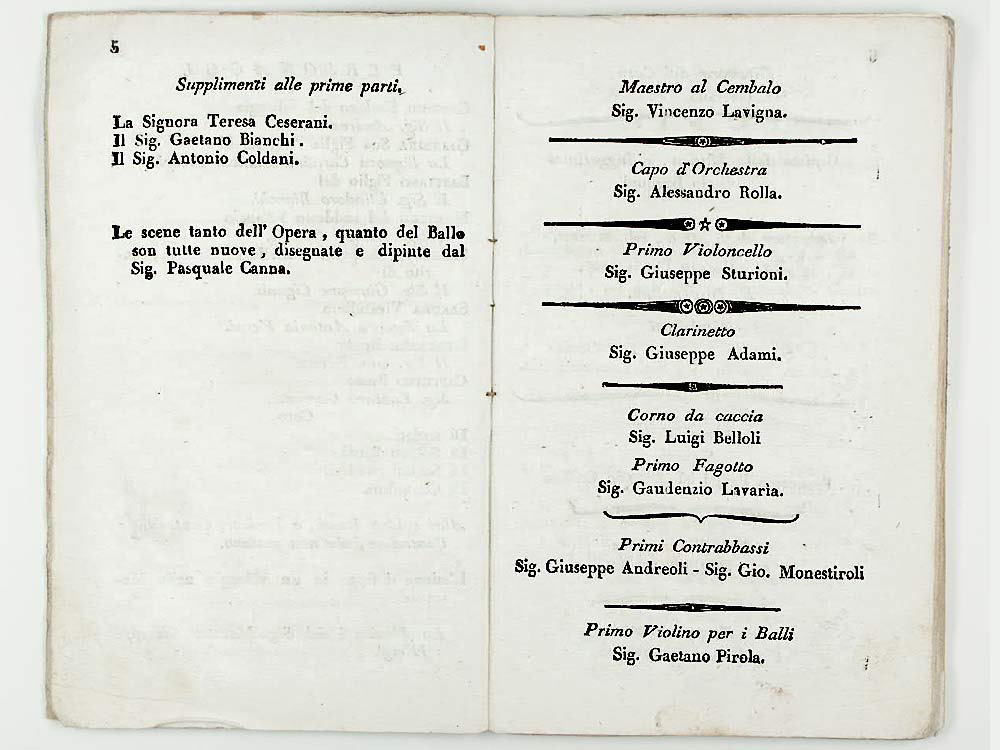 5
Supplimenti alle prime parti.
La Signora Teresa Ceserani.
Il Sig. Gaetano Bianchi.
Il Sig. Antonio Coldani.
Le scene tanto dell' Opera, quanto del Ballo
son tutte nuove, disegnate e dipinte dal
Sig. Pasquale Canna.
Maestro al Cembalo
Sig. Vincenzo Lavigna.
Capo d'Orchestra
Sig. Alessandro Rolla.
Primo Violoncello
Sig. Giuseppe Sturioni.
Clarinetto
Sig. Giuseppe Adami.
Corno da caccia
Sig. Luigi Belloli
Primo Fagotto
Sig. Gaudenzio Lavarìa.
Primi Contrabbassi
Sig. Giuseppe Andreoli - Sig. Gio. Monestiroli
Primo Violino per i Balli
Sig. Gaetano Pirola.